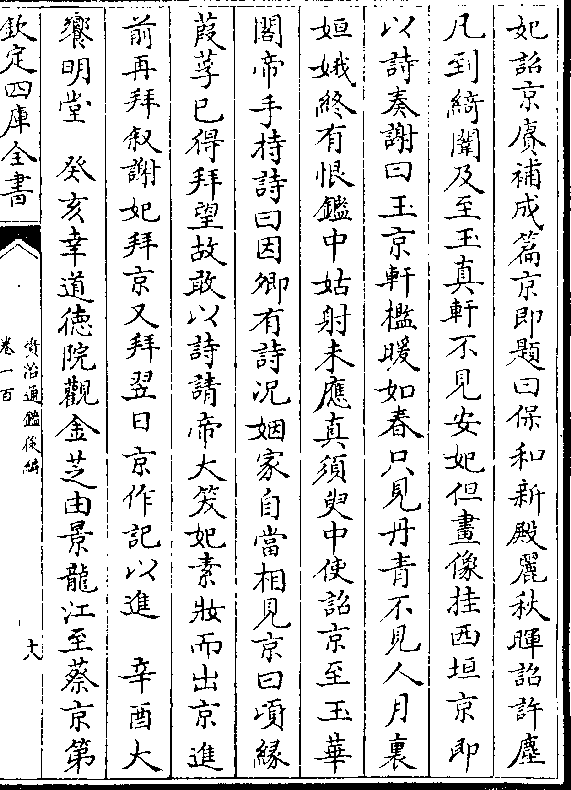 妃詔京賡補成篇京即題曰保和新殿麗秋暉詔許塵
凡到綺闈及至玉真軒不見安妃但畫像挂西垣京即
以詩奏謝曰玉京軒檻暖如春只見丹青不見人月裏
姮娥終有恨鑑中姑射未應真須臾中使詔京至玉華
閣帝手持詩曰因卿有詩況姻家自當相見京曰頃緣
葭莩已得拜望故敢以詩請帝大笑妃素妝而出京進
前再拜叙謝妃拜京又拜翌日京作記以進 辛酉大
饗明堂 癸亥幸道德院觀金芝由景龍江至蔡京第
欽定四庫全書
資治通鑑後編
卷一百